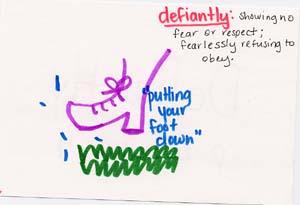 defiantly: showing no
fear or respect;
fearlessly refusing to
obey.
"putting
your
foot
down"